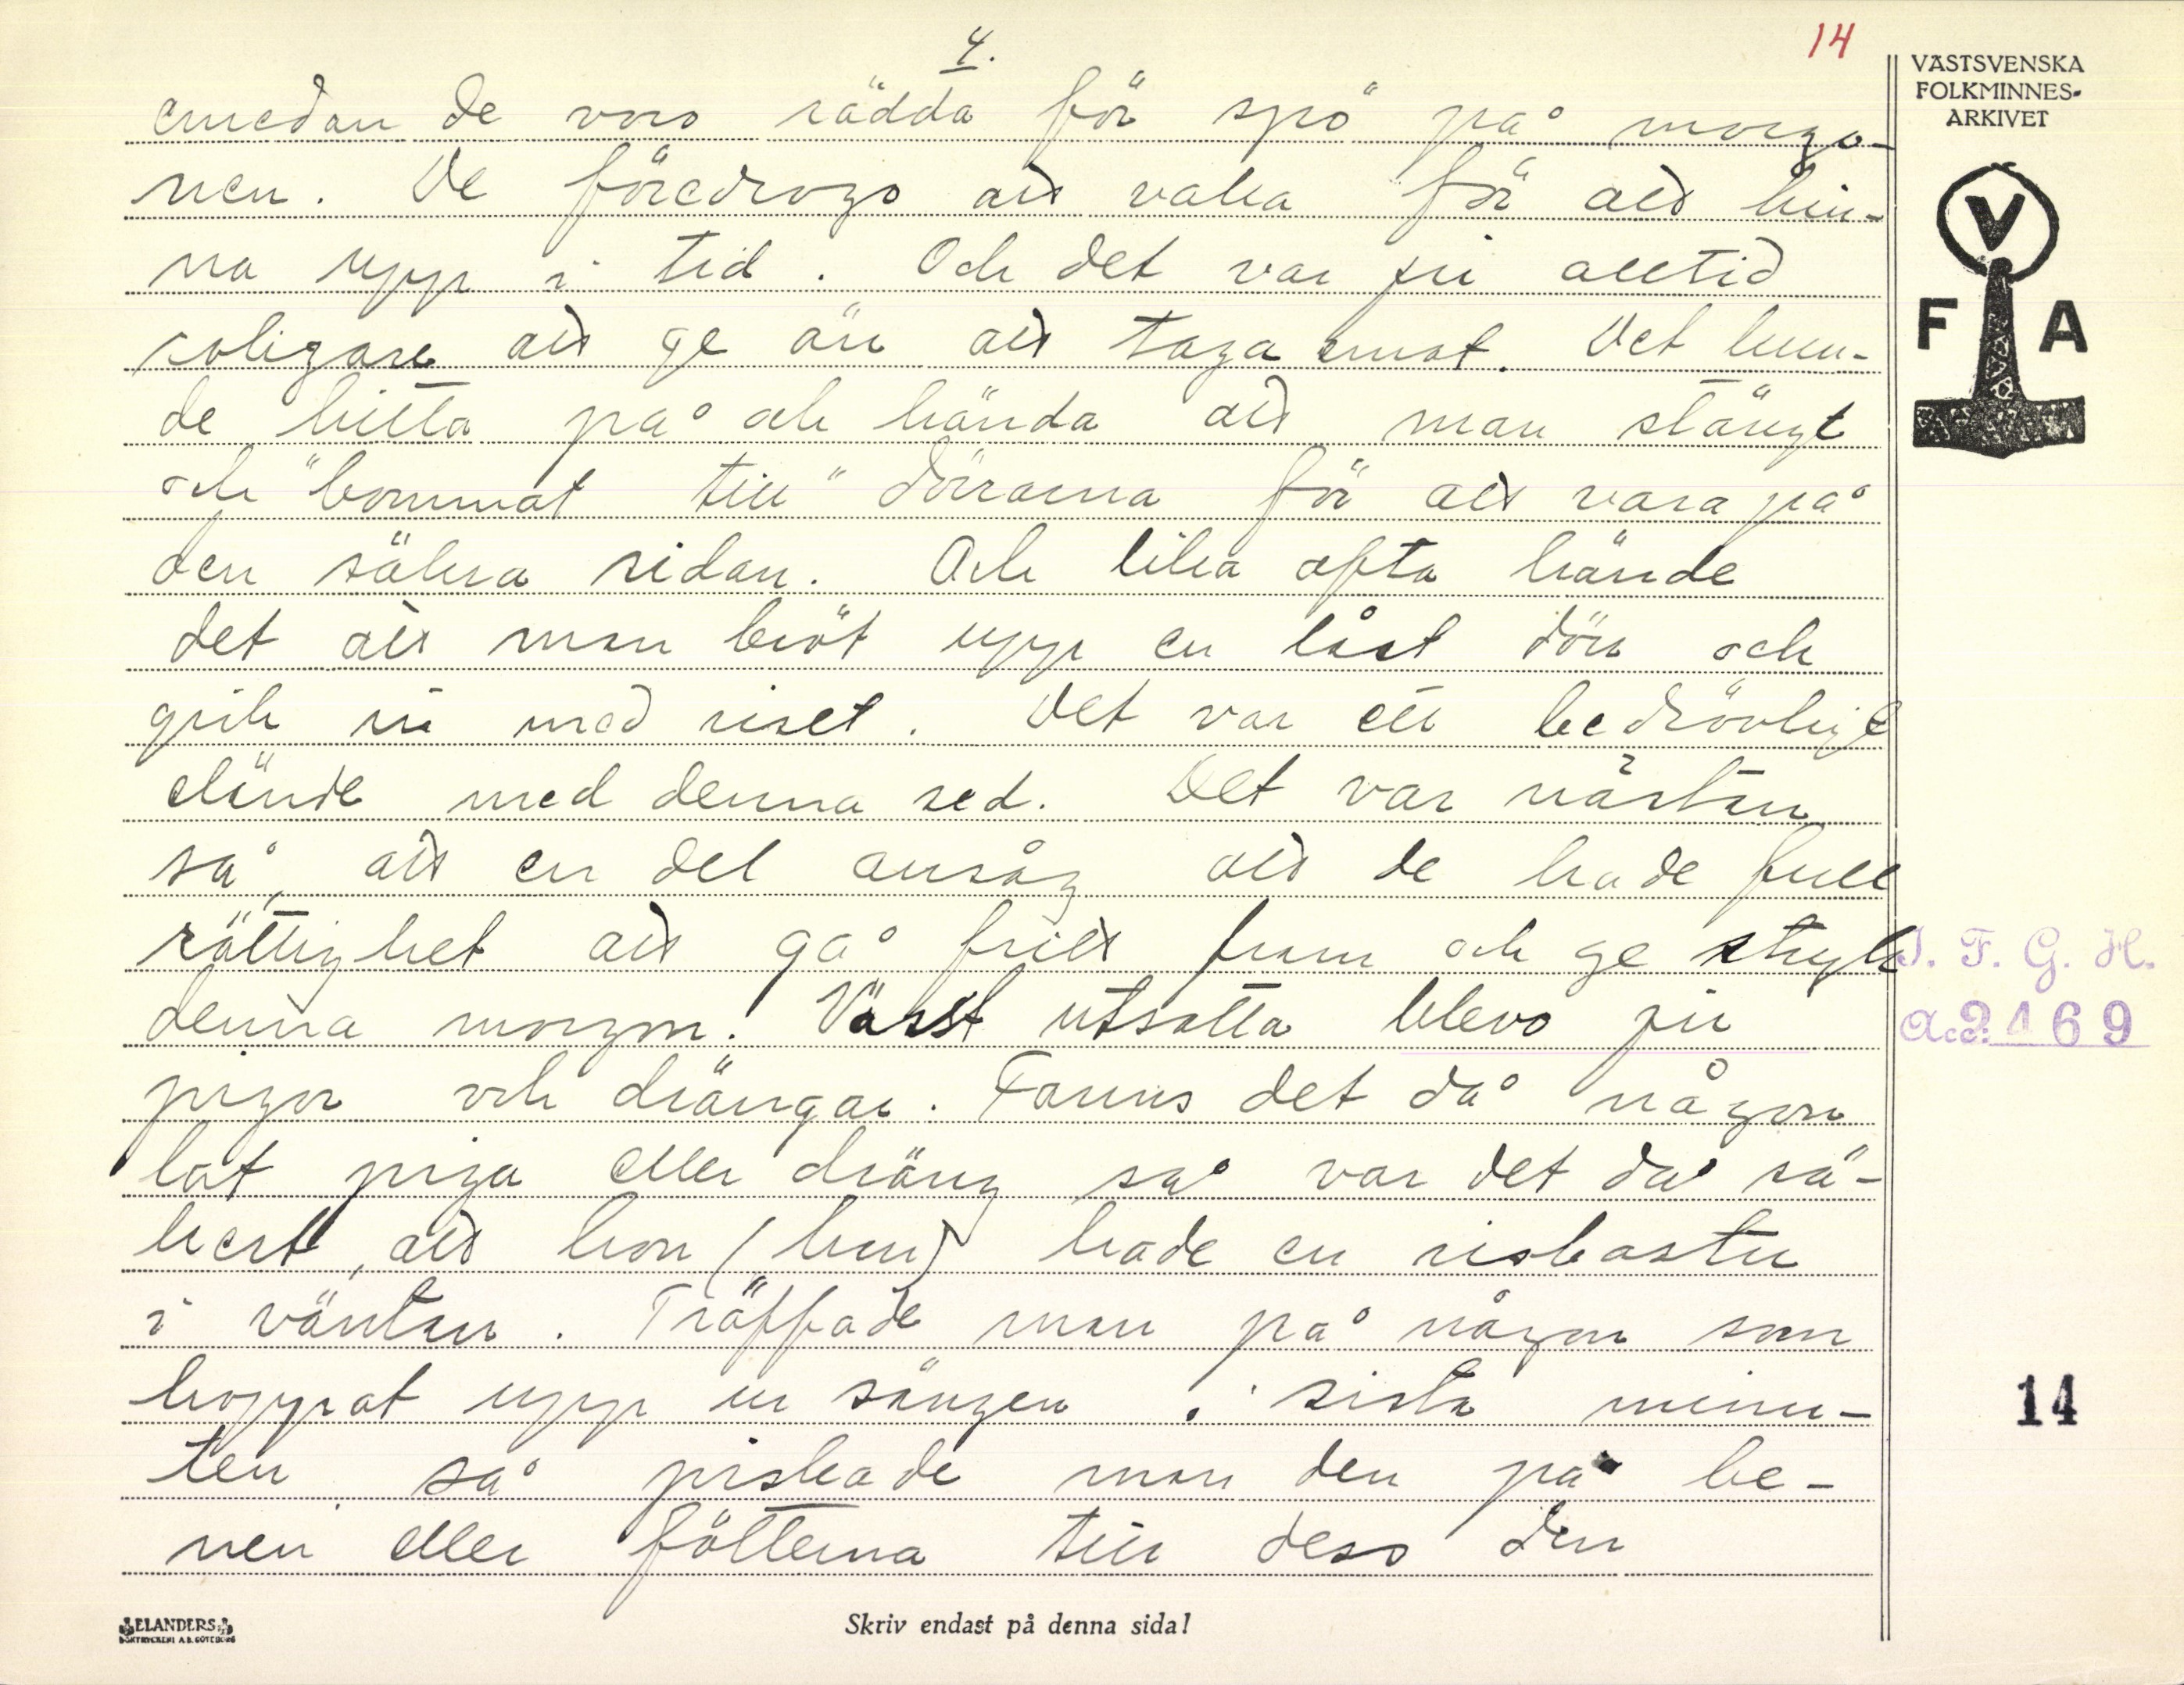 4.
14
emedan de voro rädda för spö på morgo-
nen. De föredrogo att vaka för att hin-
na upp i tid. Och det var ju alltid
roligare att ge än att taga emot. Det kun-
de hitta på och hända att man stängt
och "bommat till" dörrarna för att vara på
den säkra sidan. Och lika ofta hände
det att man bröt upp en låst dörr och
gick in med riset. Det var ett bedrövligt
elände med denna sed. Det var nästan
så, att en del ansåg att de hade full
rättighet att gå fritt fram och ge stryk
denna morgon. Värst utsatta blevo ju
pigor och drängar. Fanns det då någon
lat piga eller dräng så var det då sä-
kert, att hon (han) hade en risbastu
i väntan. Träffade man på någon som
hoppat upp ur sängen i sista minu-
ten så piskade man den på be-
nen eller fötterna till dess den
Skriv endast på denna sida!
ELANDERS
BOKTRYCKERI A.B. GÖTEBORG
VÄSTSVENSKA
FOLKMINNES-
ARKIVET
V
F A
I. F. G. H.
Acc. 2469
14